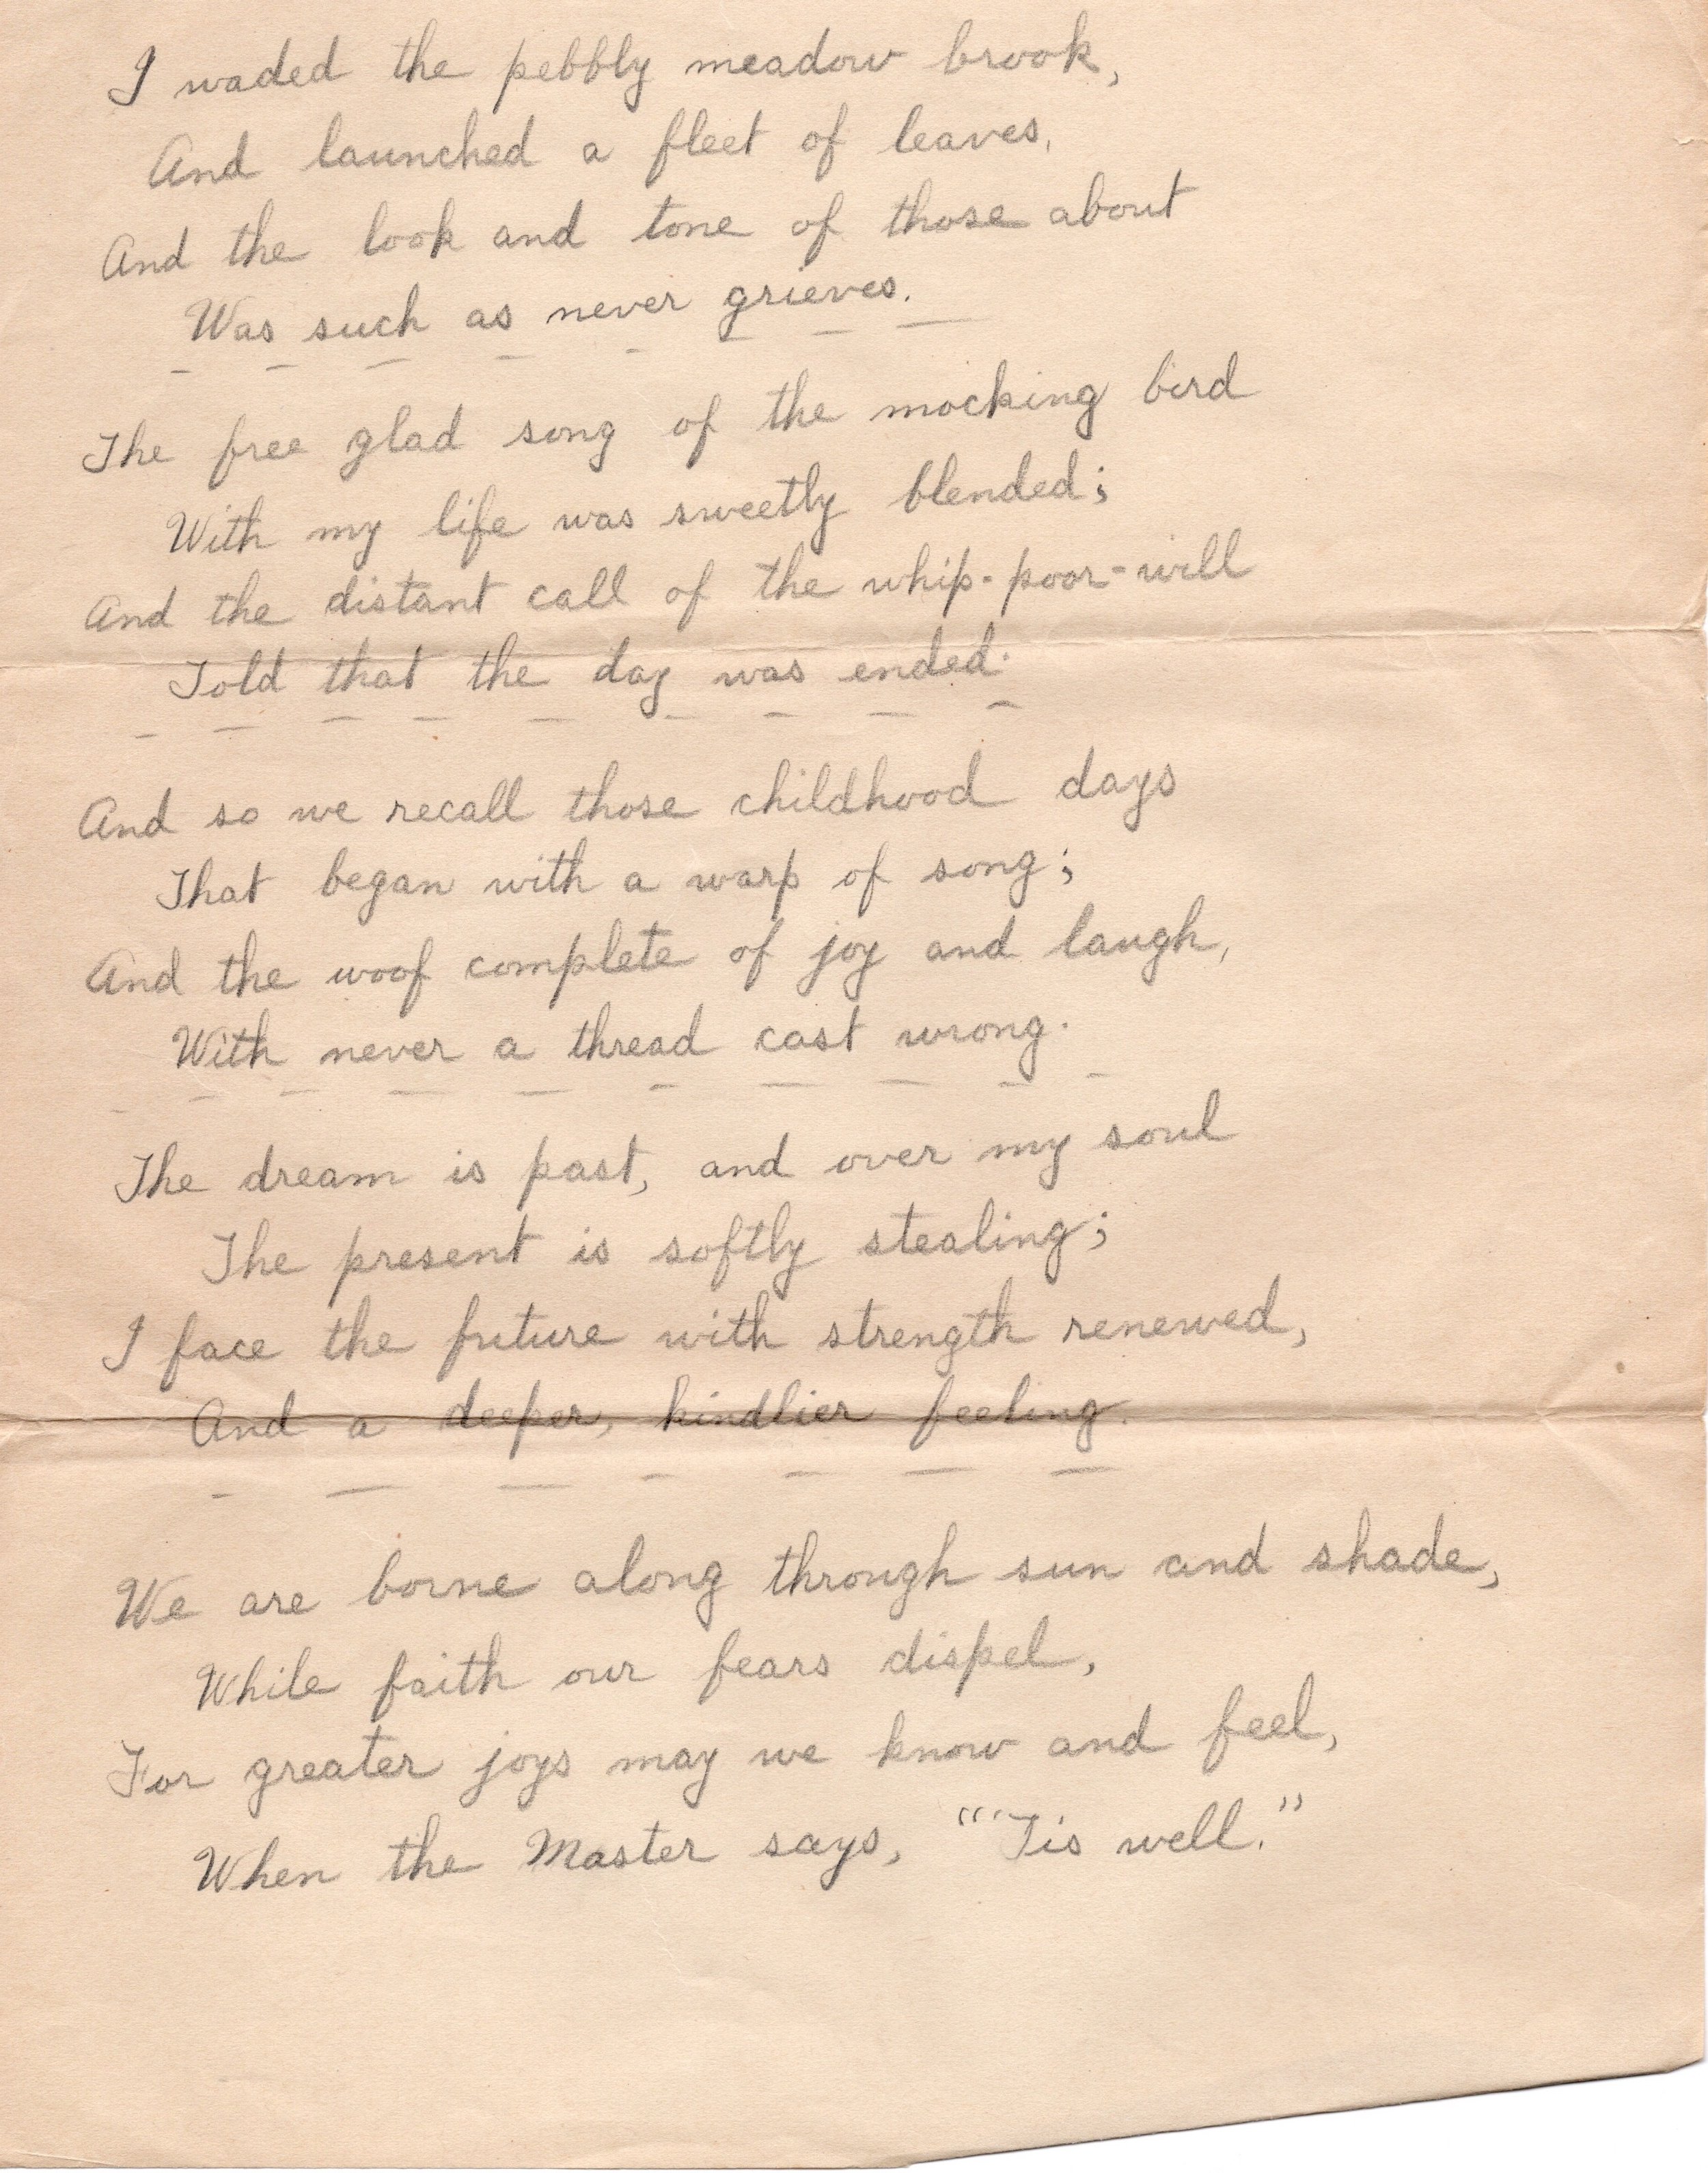 I waded the pebbly meadow brook,
And launched a fleet of leaves,
And the look and tone of those about
Was such as never grieves.
The free glad song of the mocking bird
With my life was sweetly blended;
And the distant call of the whip-poor-will
Told that the day was ended.
And so we recall those childhood days
That began with a warp of song;
And the woof complete of joy and laugh,
With never a thread cast wrong.
The dream is past, and over my soul
The present is softly stealing;
I face the future with strength renewed,
And a deeper, kindlier feeling.
We are borne along through sun and shade,
While faith our fears dispel,
For greater joys may we know and feel,
When the Master says, "'Tis well."